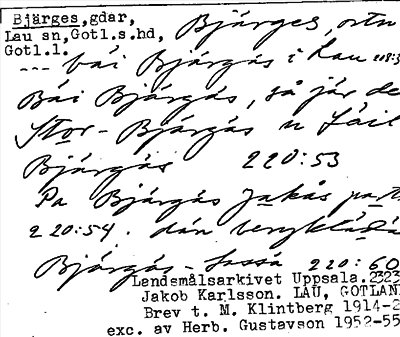 Bjärges, gdar, Bjärges, ortn
Lau sn, Gotl.s.hd,
Gotl.l.
--- bái Bjärgás i Lau 218:3
Bái Bjärgás, så jär de
Stor- Bjärgás u Láil
Bjärgás 220:53
Pa Bjärgás jakás part
220:54. dán bergklädä
Bjärgás - Lassä 220:60
Landsmålsarkivet Uppsala. 2323
Jakob Karlsson. LAU, GOTLAN
Brev t. M. Klintberg 1914-2
exc. av Herb. Gustavson 1952-55